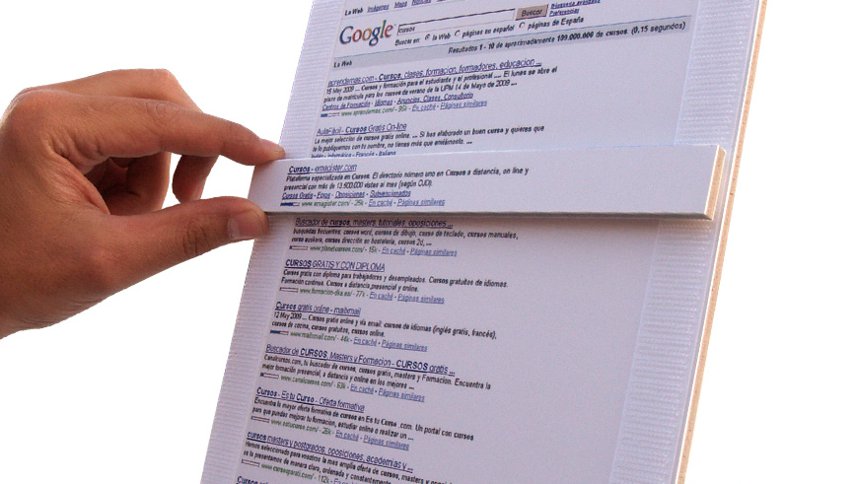 La Web Imágenes Maps Noticias
Búsqueda avanzada
Google cursos Buscar Preferencias
Buscar en: la Web páginas en español páginas de España
La Web
Resultados 1 - 10 de aproximadamente 109.000.000 de cursos. (0,15 segundos)
aprendemas.com - Cursos, clases, formacion, formadores, educacion ...
15 May 2009 ... Cursos y formación para el estudiante y el profesional ... El lunes se abre el
plazo de matrícula para los cursos de verano de la UPM 14 de Mayo de 2009 ...
Centros de Formación - Idiomas - Anuncios, Clases, Consultorio
www.aprendemas.com/ - 95k - En caché - Páginas similares
AulaFácil - Cursos Gratis On-line
La mejor selección de cursos gratis online. ... Si has elaborado un buen curso y quieres que
lo publiquemos con tu nombre, no tienes más que enviárnoslo. ...
Informática - Francés - Italiano
Cursos - emagister.com
Plataforma especializada en Cursos. El directorio número uno en Cursos a distancia, on line y
presencial con más de 13.500.000 visitas al mes (según OJD).
Cursos Gratis - Fotos - Oposiciones - Subvencionados
www.emagister.com/ - 25k - En caché - Páginas similares
Buscador de cursos, masters, tutoriales, oposiciones ...
busquedas frecuentes: cursos word, cursos de dibujo, curso de teclado, cursos manuales,
curso euskera, cursos dirección en hosteleria, cursos 2d, ...
www.planetcursos.com/ - 15k - En caché - Páginas similares
CURSOS GRATIS Y CON DIPLOMA
Cursos gratis con diploma para trabajadores y desempleados. Cursos gratuitos de idiomas.
Formación continua. Cursos a distancia,presencial y online.
www.formacion-dka.es/ - 77k - En caché - Páginas similares
Cursos gratis online - mailxmail
12 May 2009 ... Cursos gratis online y vía email: cursos de idiomas (inglés gratis, francés),
cursos de cocina, cursos gratuitos, cursos online.
www.mailxmail.com/ - 44k - En caché - Páginas similares
Buscador de CURSOS, Masters y Formacion - CURSOS gratis ...
Canalcursos.com, tu buscador de cursos, cursos gratis, masters y Formacion. Encuentra la
mejor formación presencial, a distancia y online en los mejores ...
www.canalcursos.com/ - 63k - En caché - Páginas similares
Cursos - En tu Curso - Oferta formativa
Encuentra la mayor oferta formativa de cursos en En tu Curso .com. Un portal con cursos
para que puedas mejorar tu formacion, estudiar online o realizar un ...
www.entucurso.com/ - 26k - En caché - Páginas similares
cursos masters y postgrados, oposiciones, academias y ...
Hemos seleccionado para vosotros la mas amplia oferta de cursos, masters,
os la presentamos de manera clara, ordenada y constantemente
- 112k - En caché - Páginas similares
Cursos